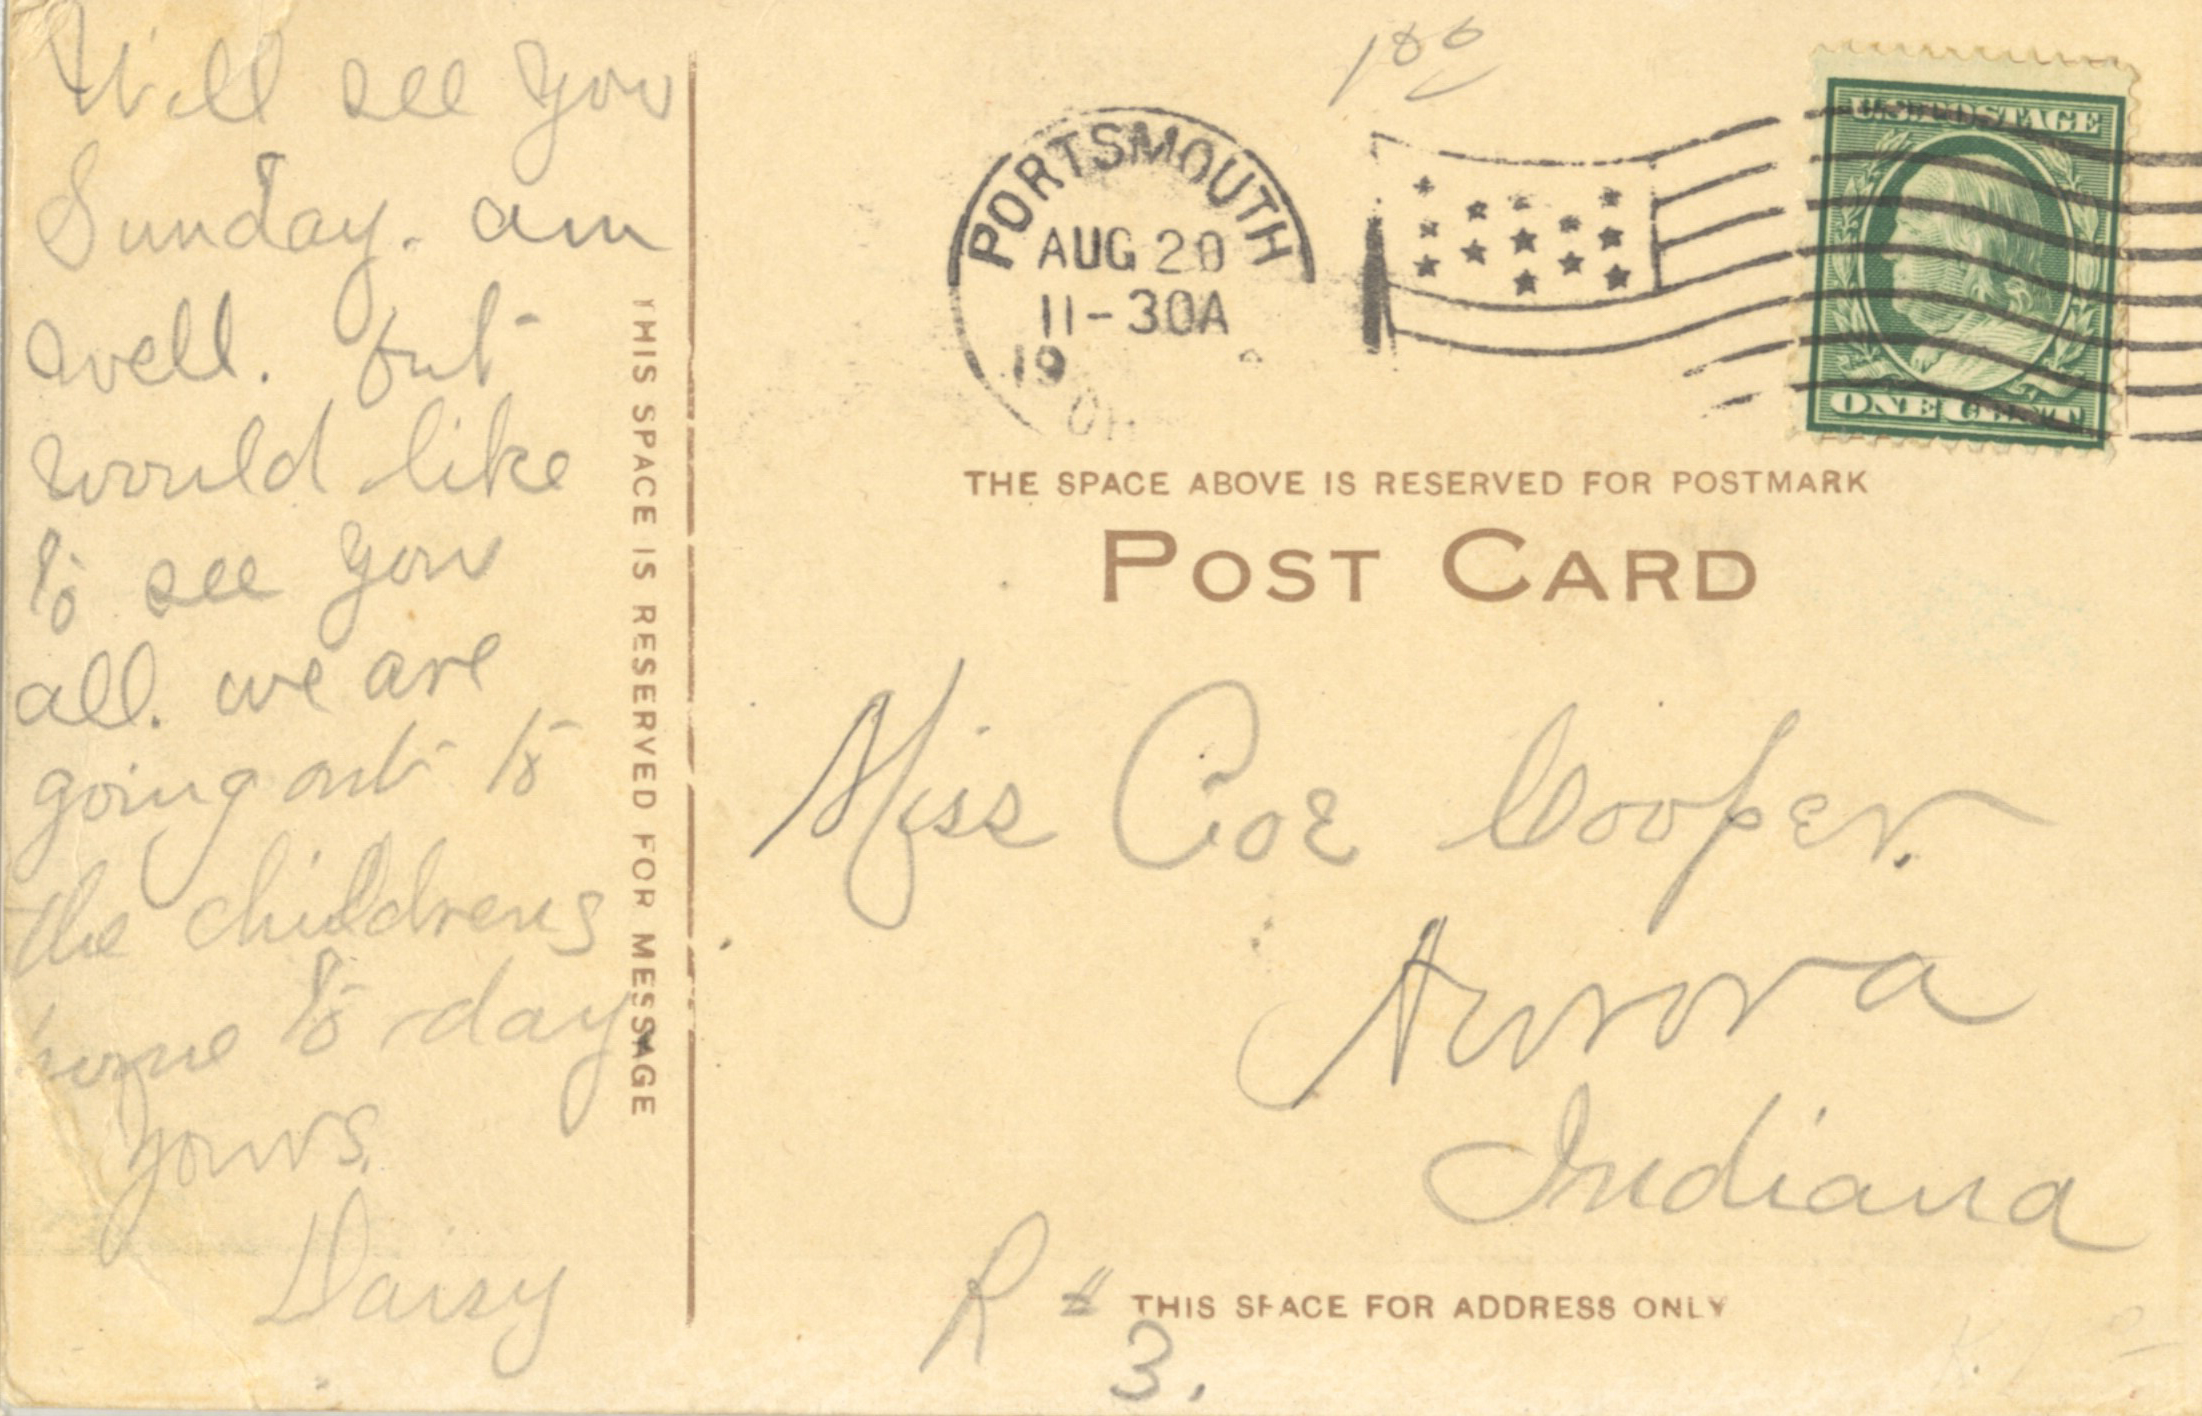 Will see you
Sunday. am
well. but
would like
to see you
all. we are
going out to
the childrens
home to day
yours.
Daisy
THIS SPACE IS RESERVED FOR MESSAGE
PORTSMOUTH
AUG 20
11-30A
19
U.S. POSTAGE
ONE CENT
THE SPACE ABOVE IS RESERVED FOR POSTMARK
POST CARD
Miss Coe Cooper.
Aurora
Indiana
R #
3.
THIS SPACE FOR ADDRESS ONLY